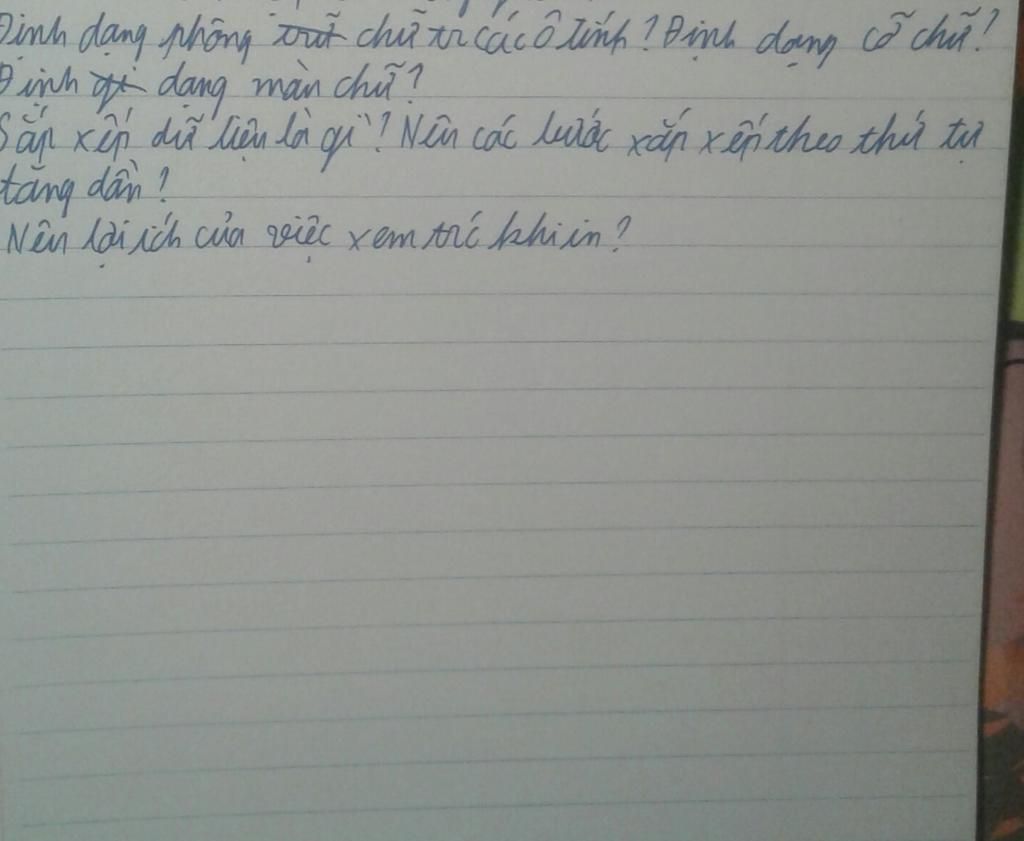 Định dạng phông chữ tr các ô tính? Định dạng cỡ chữ?
Định dạng màn chữ?
Sắp xếp dữ liệu là gì? Nên các bước xắp xếp theo thứ tự
tăng dần?
Nên lợi ích của việc xem trc khi in?